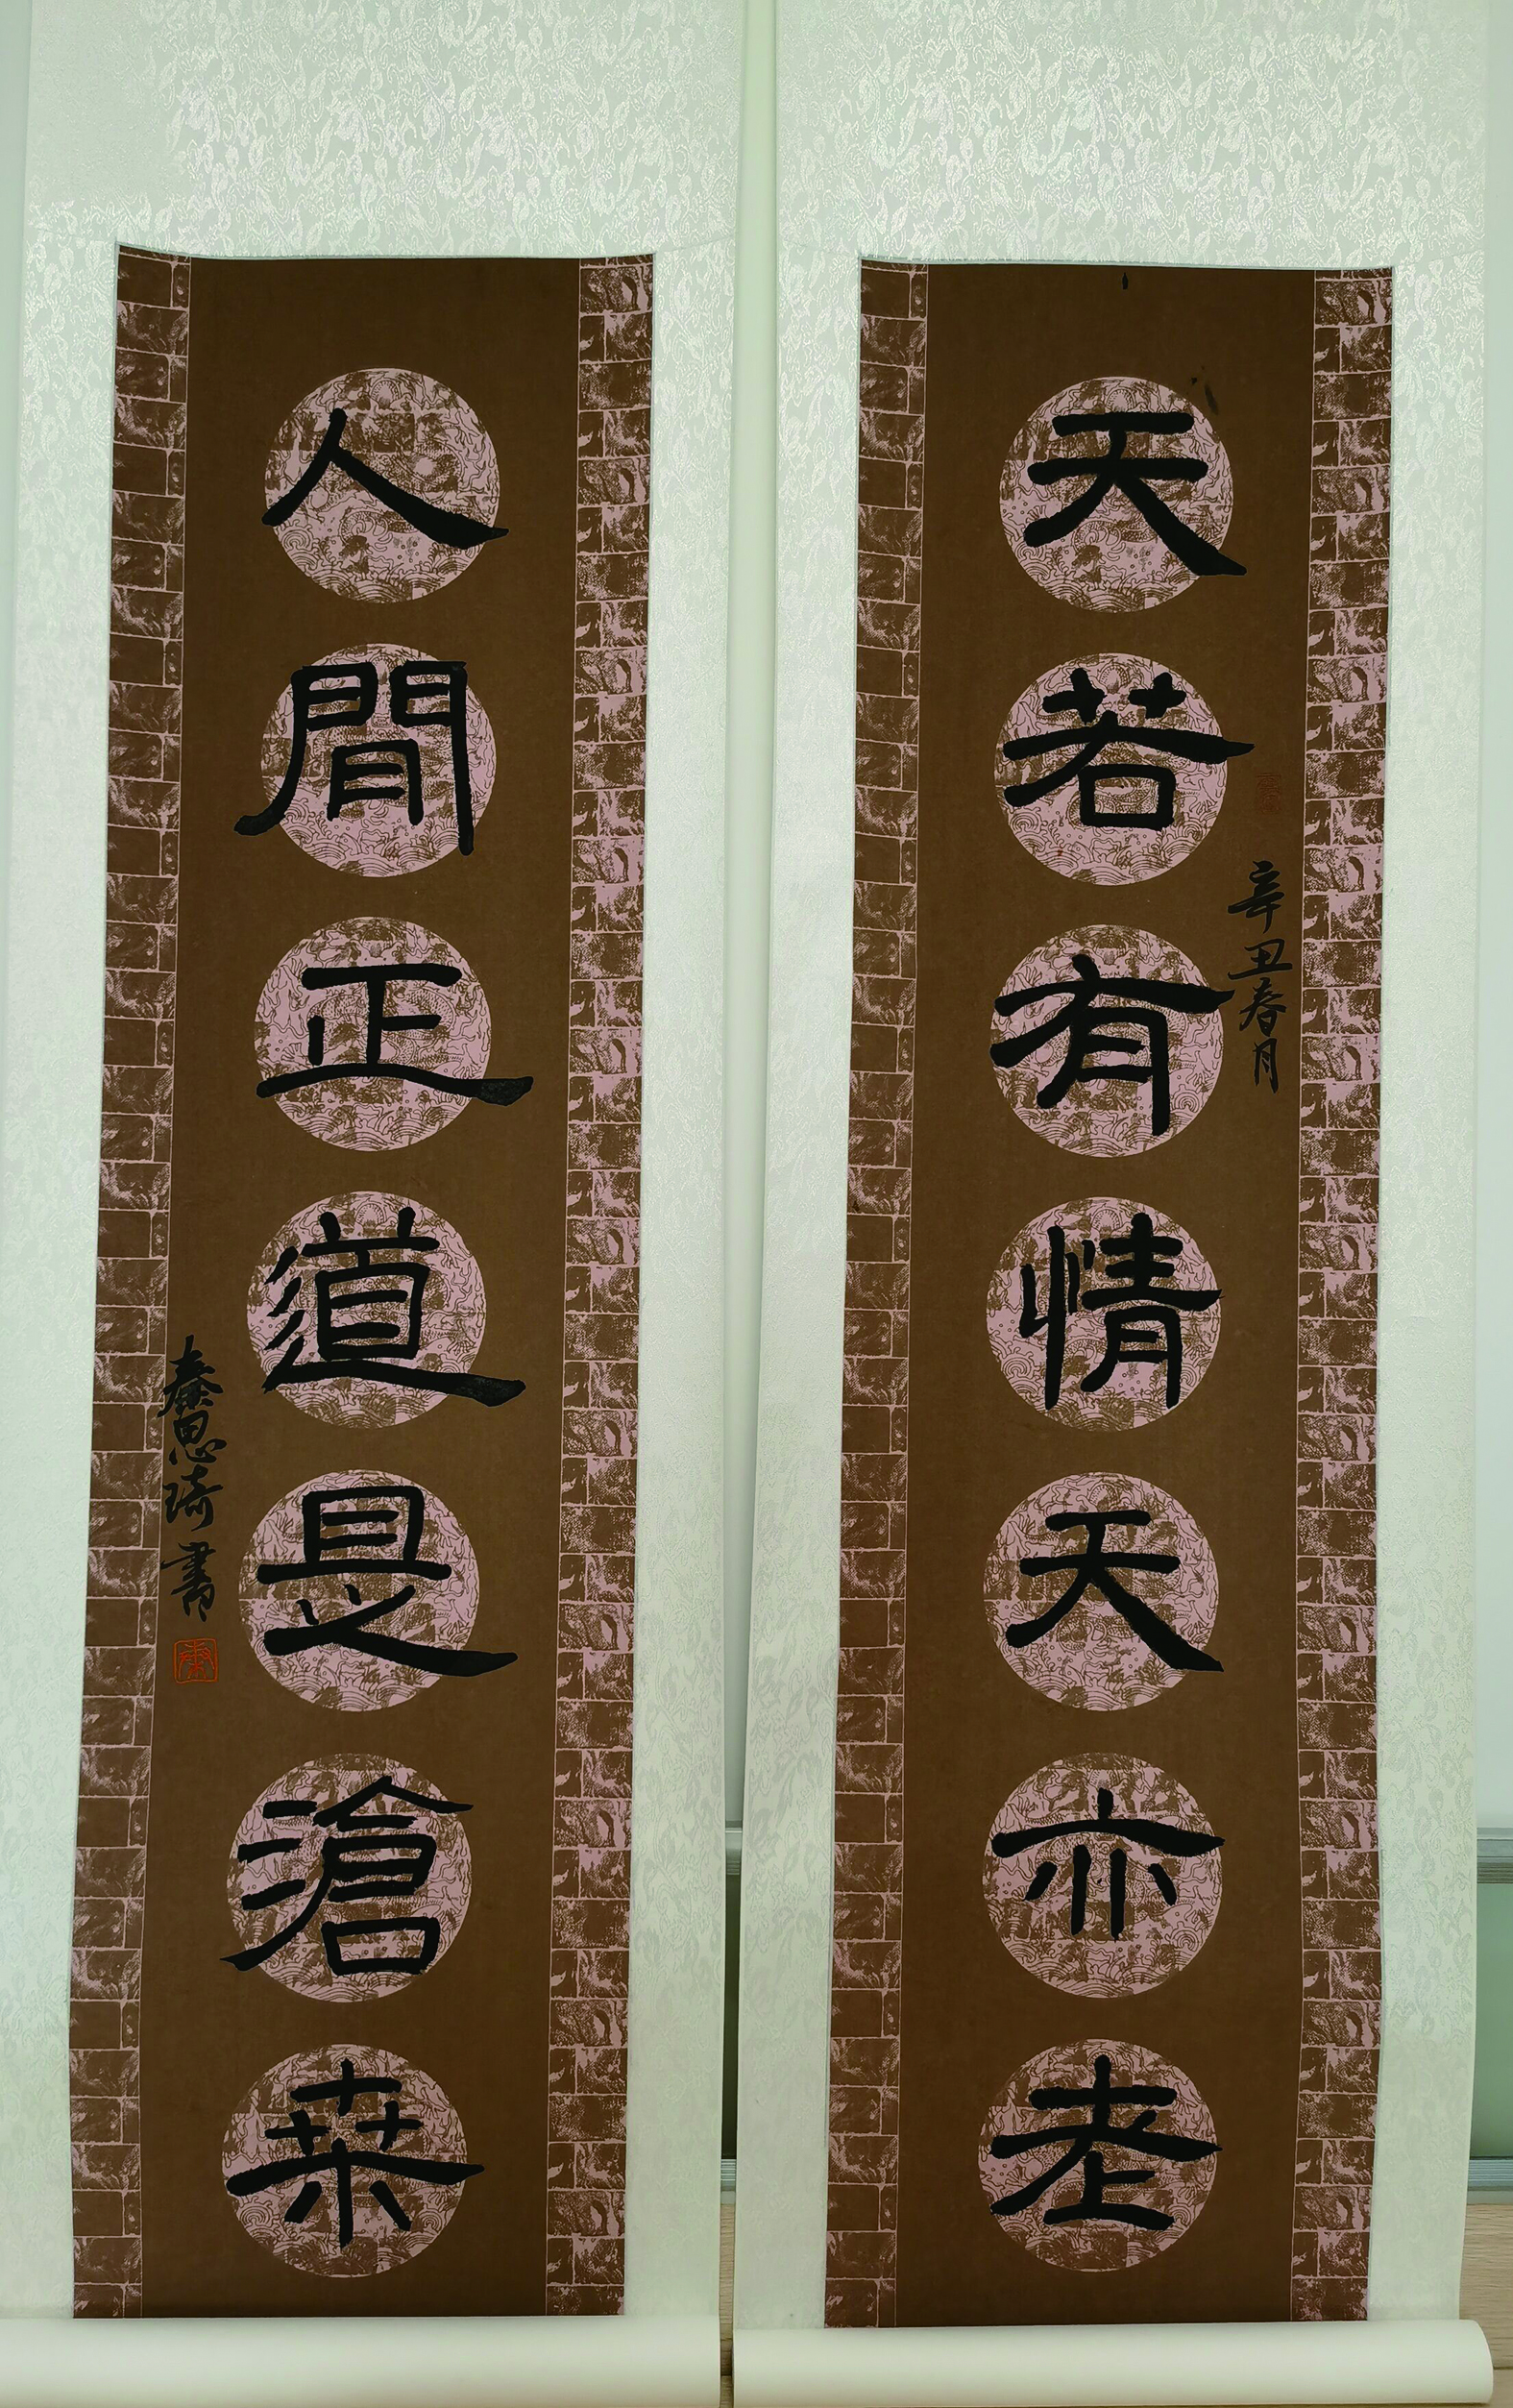 天若有情天亦老
辛丑春月
人間正道是滄桒
秦思琦書